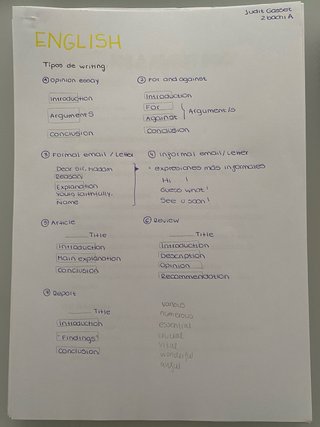 Judit Gassert
2 bachi A
ENGLISH
Tipos de writing:
① Opinion essay
Introduction
Arguments
Conclusion
② For and against
Introduction
For
Against
Arguments
Conclusion
③ Formal email / Letter
Dear Sir, Madam
Reason
Explanation
Yours faithfully,
Name
④ Informal email/Letter
• expresiones más informales
Hi !
Guess what!
See u soon!
⑤ Article
Title
Introduction
Main explanation
Conclusion
⑥ Review
Title
Introduction
Description
Opinion
Recommendation
⑦ Report
Title
Introduction
"Findings"
Conclusion
various
numerous
essential
crucial
vital
wonderful
awful